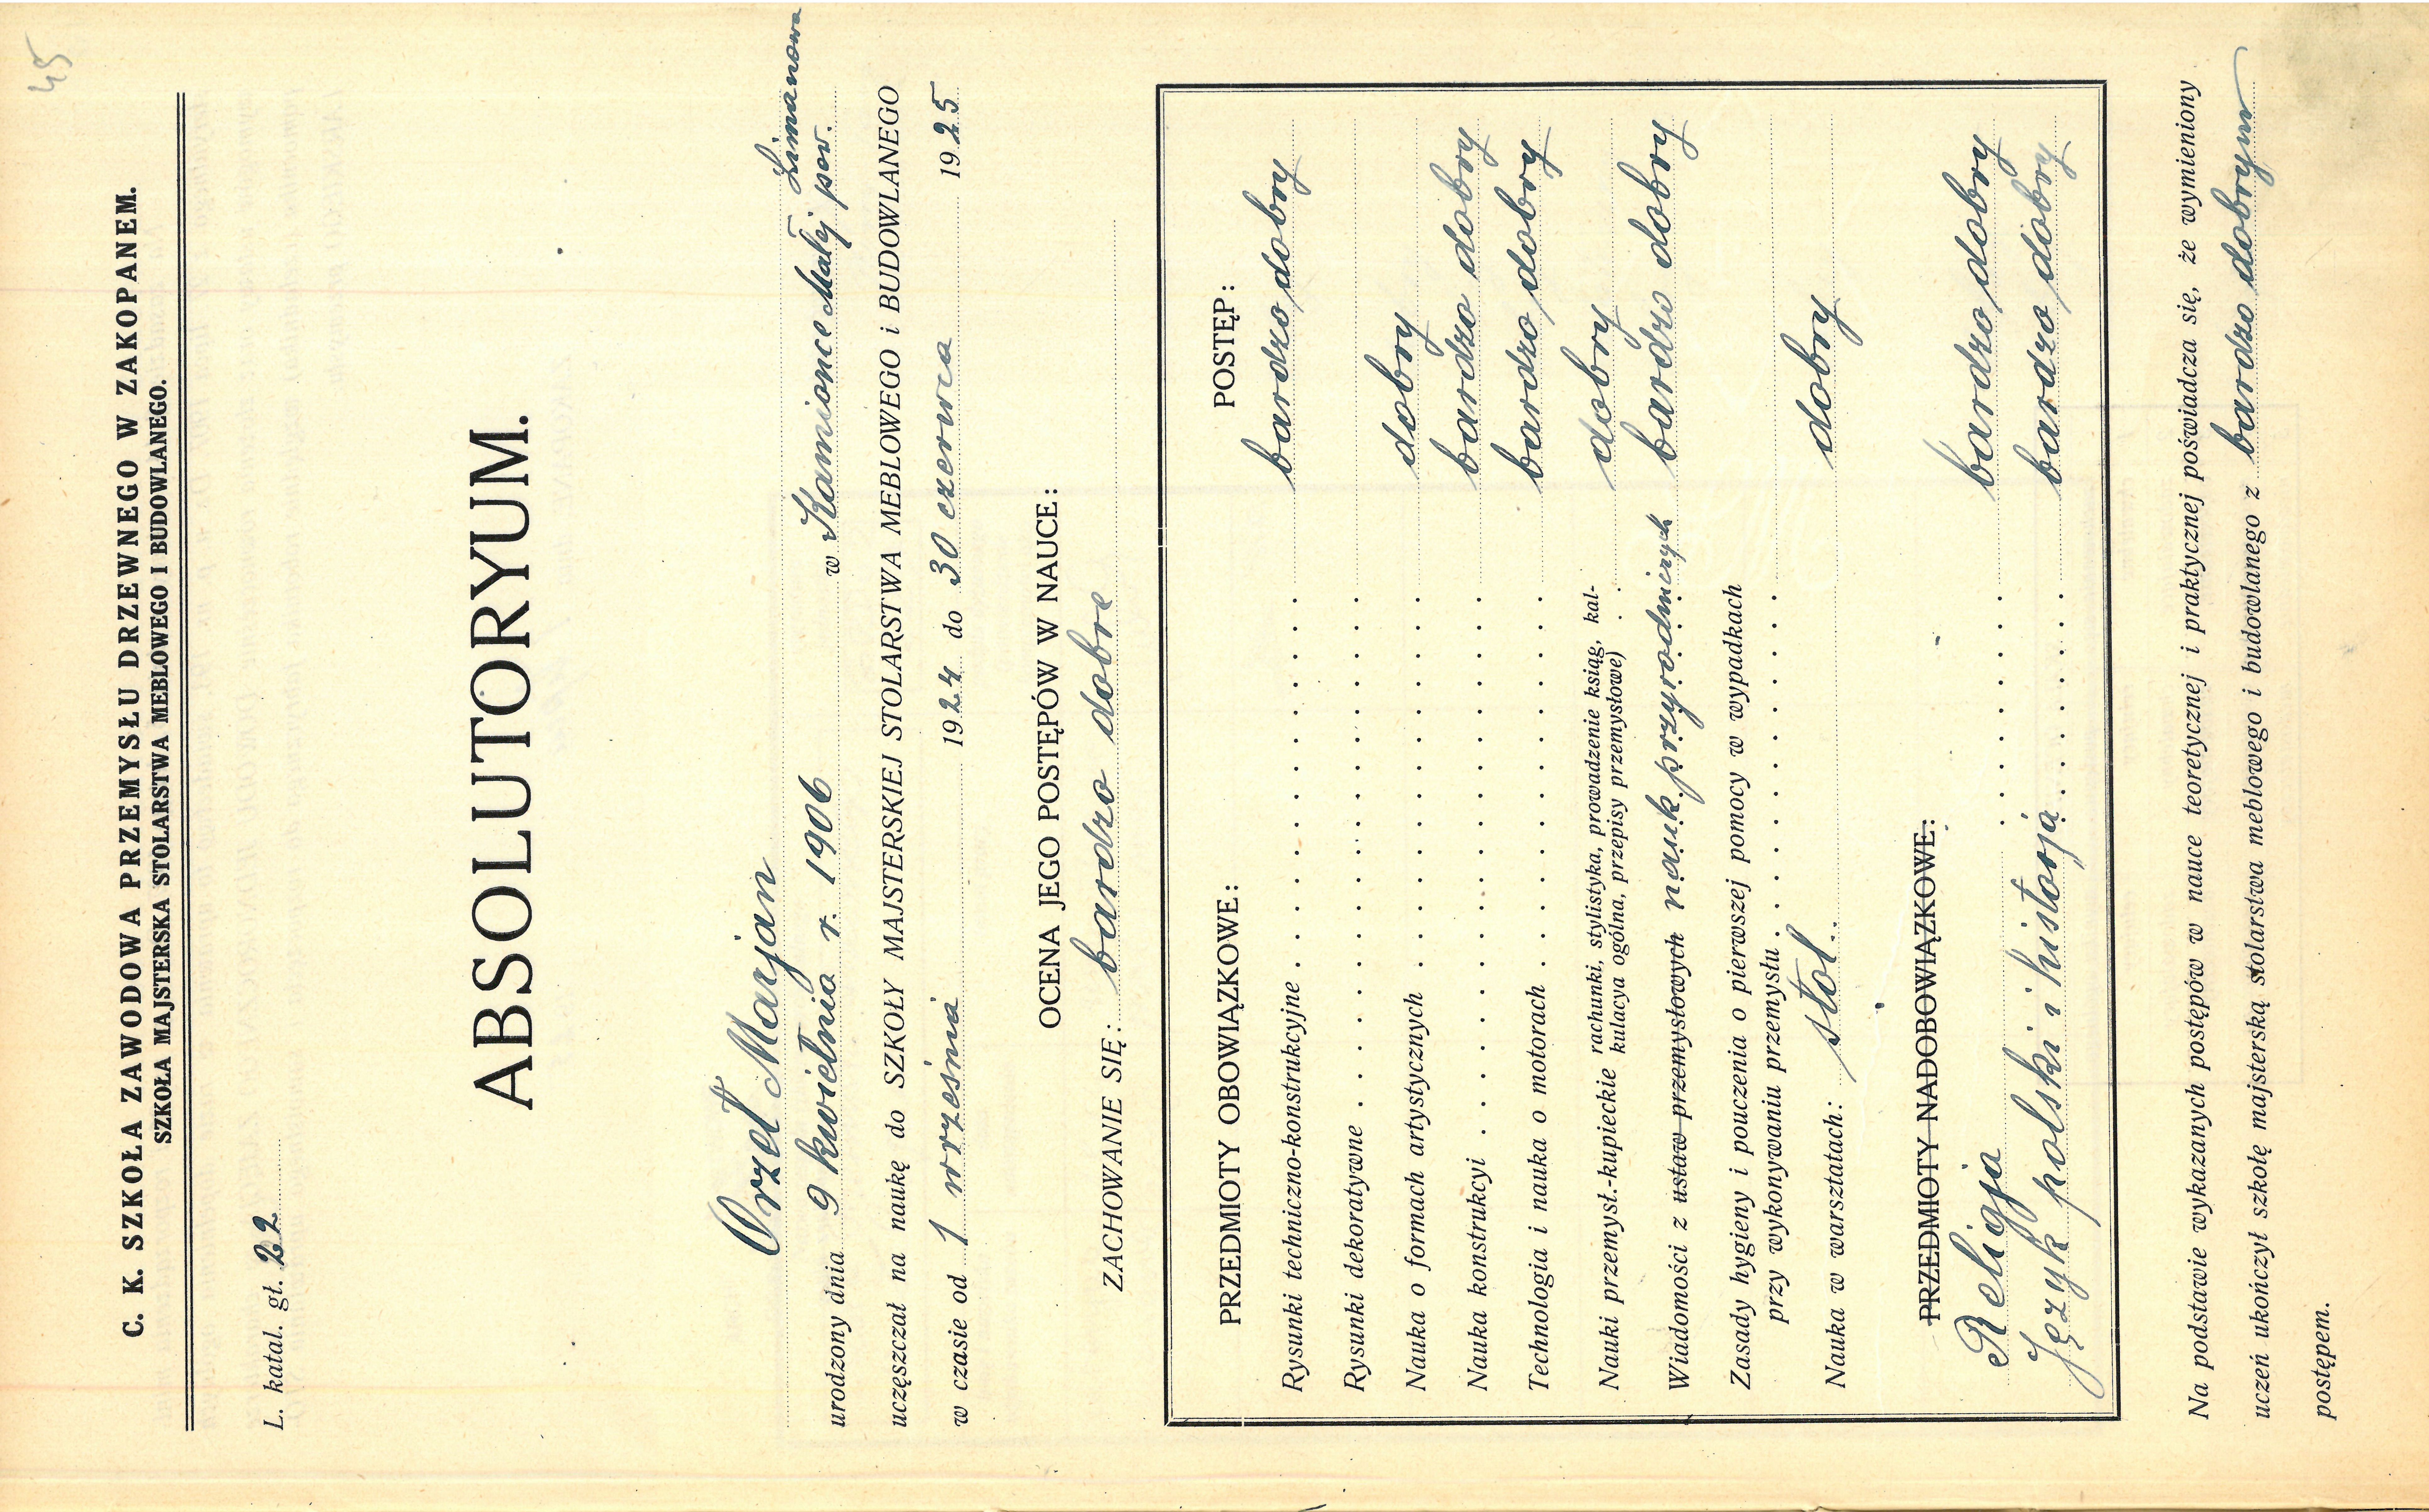 45
C. K. SZKOŁA ZAWODOWA PRZEMYSŁU DRZEWNEGO W ZAKOPANEM.
SZKOŁA MAJSTERSKA STOLARSTWA MEBLOWEGO I BUDOWLANEGO.
L. katal. gł. 22
ABSOLUTORYUM.
Orzeł Marjan
urodzony dnia 9 kwietnia r. 1906 w Kamionce Małej pow. Limanowa
uczęszczał na naukę do SZKOŁY MAJSTERSKIEJ STOLARSTWA MEBLOWEGO i BUDOWLANEGO
w czasie od 1 września 1924 do 30 czerwca 1925
OCENA JEGO POSTĘPÓW W NAUCE:
ZACHOWANIE SIĘ: bardzo dobre
PRZEDMIOTY OBOWIĄZKOWE: POSTĘP:
Rysunki techniczno-konstrukcyjne . . . . . . . . . . . . . . bardzo dobry
Rysunki dekoratywne . . . . . . . . . . . . . . . . . . .
Nauka o formach artystycznych . . . . . . . . . . . . . . dobry
Nauka konstrukcyi . . . . . . . . . . . . . . . . . . . . bardzo dobry
Technologia i nauka o motorach . . . . . . . . . . . . . . bardzo dobry
Nauki przemysł.-kupieckie rachunki, stylistyka, prowadzenie ksiąg, kal-
kulacya ogólna, przepisy przemysłowe) . . dobry
Wiadomości z ustaw przemysłowych nauk przyrodniczych bardzo dobry
Zasady hygieny i pouczenia o pierwszej pomocy w wypadkach
przy wykonywaniu przemysłu . . . . . . . . . . . . .
Nauka w warsztatach: stol. dobry
PRZEDMIOTY NADOBOWIĄZKOWE:
Religja . . . . . . bardzo dobry
Język polski i historja . . . . . . bardzo dobry
Na podstawie wykazanych postępów w nauce teoretycznej i praktycznej poświadcza się, że wymieniony
uczeń ukończył szkołę majsterską stolarstwa meblowego i budowlanego z bardzo dobrym
postępem.